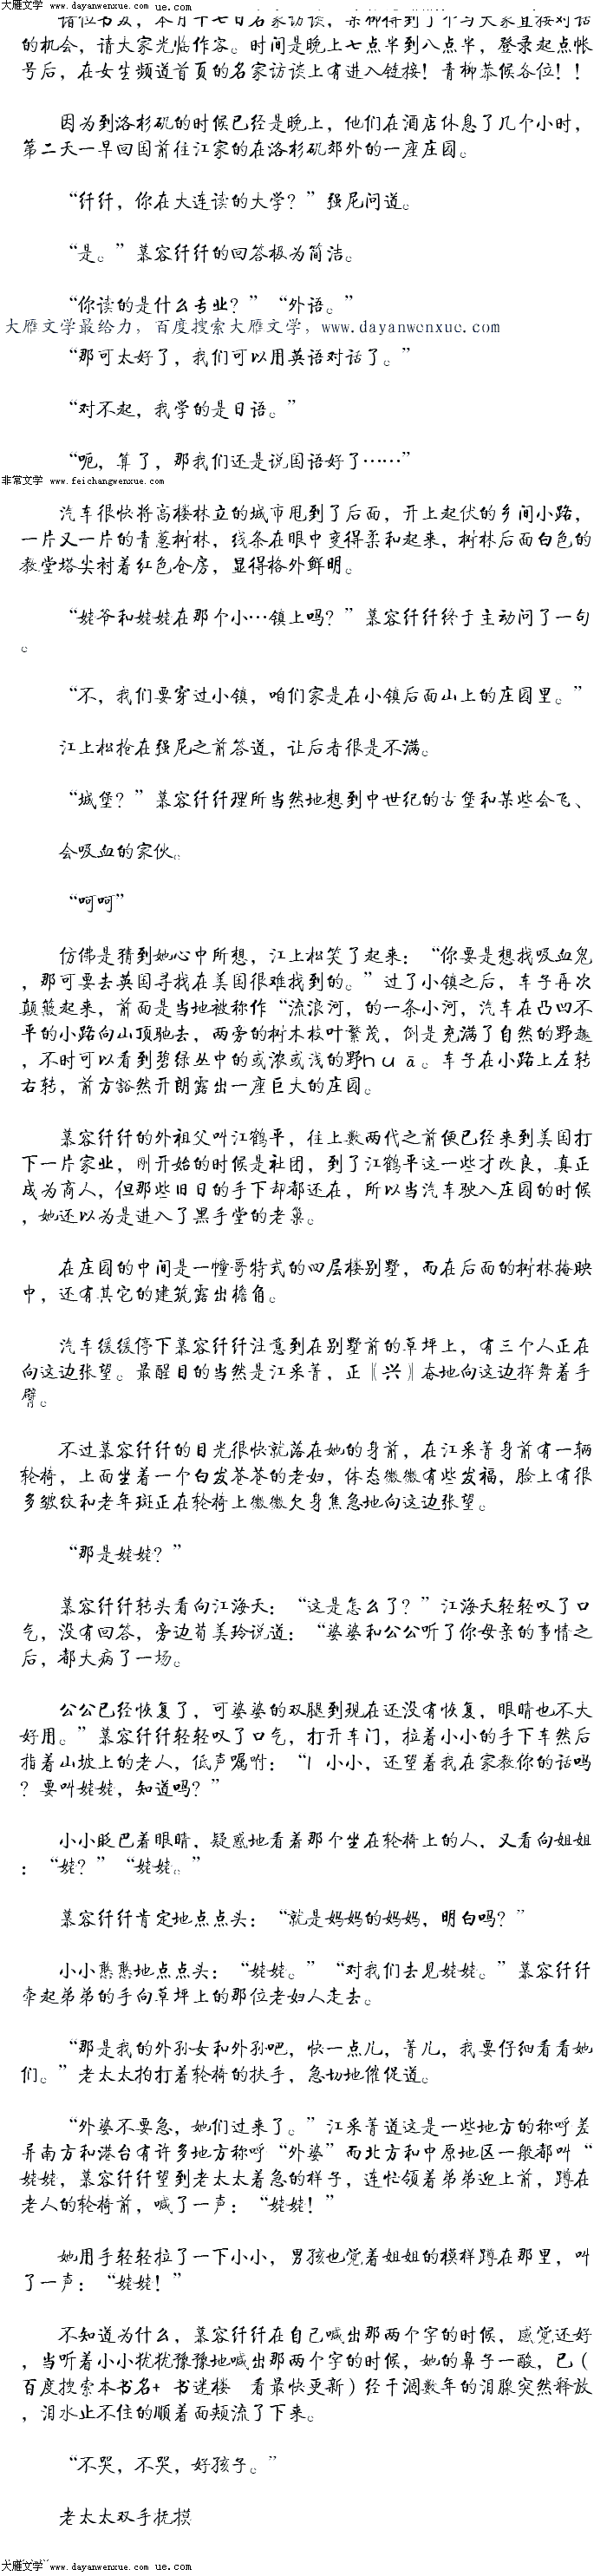 大雁文学 www.dayanwenxue.com ue.com
诸位书友，本月十七日名家访谈，青柳得到了个与大家直接对话
的机会，请大家光临作客。时间是晚上七点半到八点半，登录起点帐
号后，在女生频道首页的名家访谈上有进入链接！青柳恭候各位！！
因为到洛杉矶的时候已经是晚上，他们在酒店休息了几个小时，
第二天一早回国前往江家的在洛杉矶郊外的一座庄园。
“纤纤，你在大连读的大学？”强尼问道。
“是。”慕容纤纤的回答极为简洁。
“你读的是什么专业？”“外语。”
大雁文学最给力，百度搜索大雁文学，www.dayanwenxue.com
“那可太好了，我们可以用英语对话了。”
“对不起，我学的是日语。”
“呃，算了，那我们还是说国语好了……”
非常文学 www.feichangwenxue.com
汽车很快将高楼林立的城市甩到了后面，开上起伏的乡间小路，
一片又一片的青葱树林，线条在眼中变得柔和起来，树林后面白色的
教堂塔尖衬着红色仓房，显得格外鲜明。
“姥爷和姥姥在那个小…镇上吗？”慕容纤纤终于主动问了一句
。
“不，我们要穿过小镇，咱们家是在小镇后面山上的庄园里。”
江上松抢在强尼之前答道，让后者很是不满。
“城堡？”慕容纤纤理所当然地想到中世纪的古堡和某些会飞、
会吸血的家伙。
“呵呵”
仿佛是猜到她心中所想，江上松笑了起来：“你要是想找吸血鬼
，那可要去英国寻找在美国很难找到的。”过了小镇之后，车子再次
颠簸起来，前面是当地被称作“流浪河，的一条小河，汽车在凸凹不
平的小路向山顶驰去，两旁的树木枝叶繁茂，倒是充满了自然的野趣
，不时可以看到碧绿丛中的或浓或浅的野huā。车子在小路上左转
右转，前方豁然开朗露出一座巨大的庄园。
慕容纤纤的外祖父叫江鹤平，往上数两代之前便已经来到美国打
下一片家业，刚开始的时候是社团，到了江鹤平这一些才改良，真正
成为商人，但那些旧日的手下却都还在，所以当汽车驶入庄园的时候
，她还以为是进入了黑手堂的老巢。
在庄园的中间是一幢哥特式的四层楼别墅，而在后面的树林掩映
中，还有其它的建筑露出檐角。
汽车缓缓停下慕容纤纤注意到在别墅前的草坪上，有三个人正在
向这边张望。最醒目的当然是江采菁，正〖兴〗奋地向这边挥舞着手
臂。
不过慕容纤纤的目光很快就落在她的身前，在江采菁身前有一辆
轮椅，上面坐着一个白发苍苍的老妇，体态微微有些发福，脸上有很
多皱纹和老年斑正在轮椅上微微欠身焦急地向这边张望。
“那是姥姥？”
慕容纤纤转头看向江海天：“这是怎么了？”江海天轻轻叹了口
气，没有回答，旁边荀美玲说道：“婆婆和公公听了你母亲的事情之
后，都大病了一场。
公公已经恢复了，可婆婆的双腿到现在还没有恢复，眼睛也不大
好用。”慕容纤纤轻轻叹了口气，打开车门，拉着小小的手下车然后
指着山坡上的老人，低声嘱咐：“l 小小，还望着我在家教你的话吗
？要叫姥姥，知道吗？”
小小眨巴着眼睛，疑惑地看着那个坐在轮椅上的人，又看向姐姐
：“姥？”“姥姥。”
慕容纤纤肯定地点点头：“就是妈妈的妈妈，明白吗？”
小小憨憨地点点头：“姥姥。”“对我们去见姥姥。”慕容纤纤
牵起弟弟的手向草坪上的那位老妇人走去。
“那是我的外孙女和外孙吧，快一点儿，菁儿，我要仔细看看她
们。”老太太拍打着轮椅的扶手，急切地催促道。
“外婆不要急，她们过来了。”江采菁道这是一些地方的称呼差
异南方和港台有许多地方称呼“外婆”而北方和中原地区一般都叫“
姥姥，慕容纤纤望到老太太着急的样子，连忙领着弟弟迎上前，蹲在
老人的轮椅前，喊了一声：“姥姥！”
她用手轻轻拉了一下小小，男孩也觉着姐姐的模样蹲在那里，叫
了一声：“姥姥！”
不知道为什么，慕容纤纤在自己喊出那两个字的时候，感觉还好
，当听着小小犹犹豫豫地喊出那两个字的时候，她的鼻子一酸，已（
百度搜索本书名+ 书迷楼 看最快更新）经干涸数年的泪腺突然释放
，泪水止不住的顺着面颊流了下来。
“不哭，不哭，好孩子。”
老太太双手抚摸
大雁文学 www.dayanwenxue.com ue.com